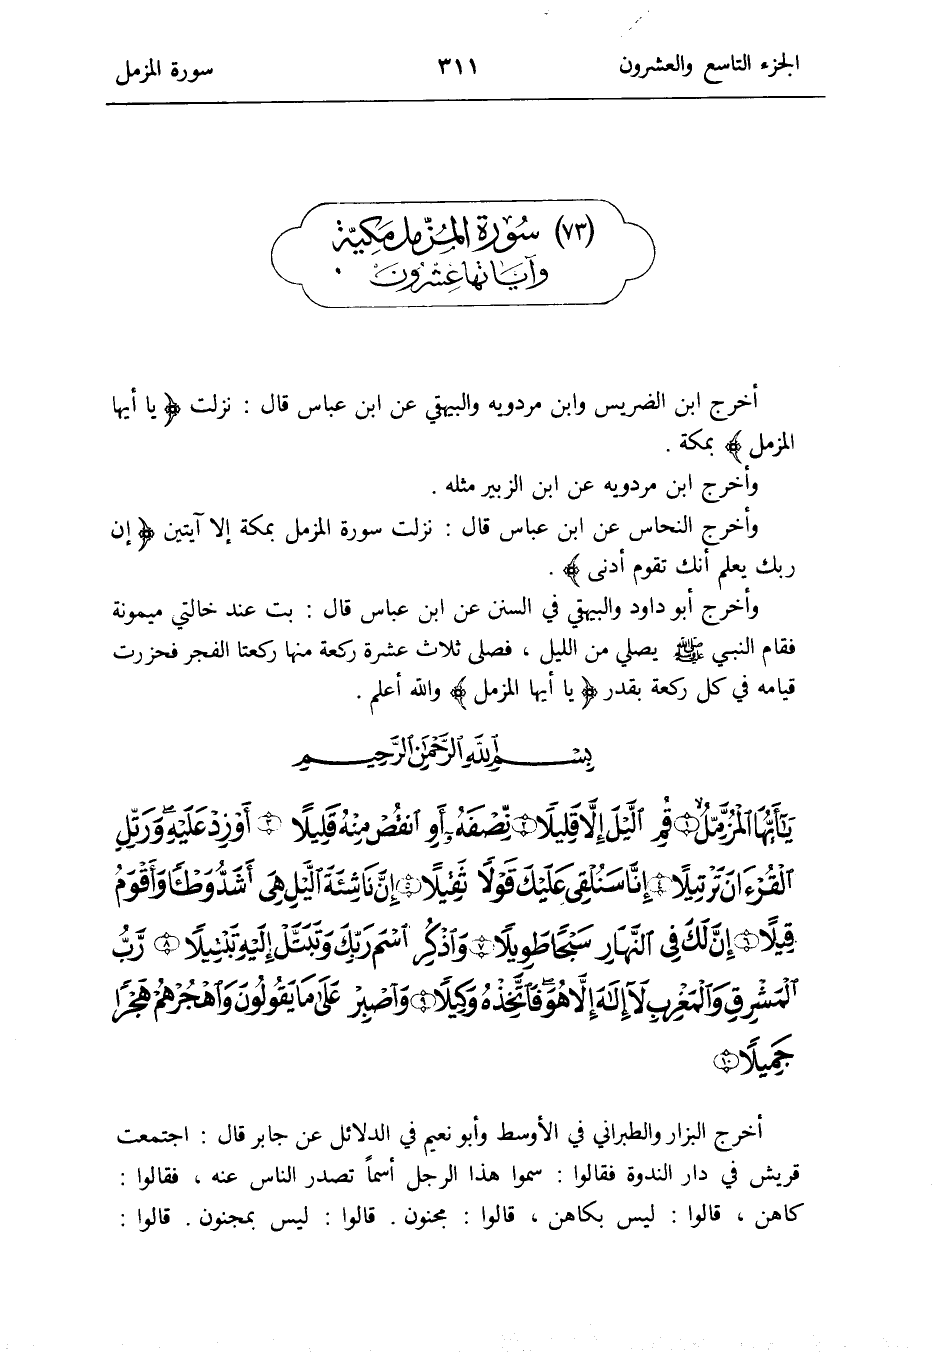 الجزء التاسع والعشرون ٣١١ سورة المزمل
(٧٣) سُورَة المُزّمل مَكِيّة
وَآيَاتهَا عِشْرُونَ
أخرج ابن الضريس وابن مردويه والبيهقي عن ابن عباس قال : نزلت ﴿ يا أيها
المزمل ﴾ بمكة .
وأخرج ابن مردويه عن ابن الزبير مثله .
وأخرج النحاس عن ابن عباس قال : نزلت سورة المزمل بمكة إلا آيتين ﴿ إن
ربك يعلم أنك تقوم أدنى ﴾ .
وأخرج أبو داود والبيهقي في السنن عن ابن عباس قال : بت عند خالتي ميمونة
فقام النبي ﷺ يصلي من الليل ، فصلى ثلاث عشرة ركعة منها ركعتا الفجر فحزرت
قيامه في كل ركعة بقدر ﴿ يا أيها المزمل ﴾ والله أعلم .
بِسْمِ ٱللَّهِ ٱلرَّحْمَٰنِ ٱلرَّحِيمِ
يَٰٓأَيُّهَا ٱلْمُزَّمِّلُ ۝١ قُمِ ٱلَّيْلَ إِلَّا قَلِيلًا ۝٢ نِّصْفَهُۥٓ أَوِ ٱنقُصْ مِنْهُ قَلِيلًا ۝٣ أَوْ زِدْ عَلَيْهِ وَرَتِّلِ
ٱلْقُرْءَانَ تَرْتِيلًا ۝٤ إِنَّا سَنُلْقِى عَلَيْكَ قَوْلًا ثَقِيلًا ۝٥ إِنَّ نَاشِئَةَ ٱلَّيْلِ هِىَ أَشَدُّ وَطْـًٔا وَأَقْوَمُ
قِيلًا ۝٦ إِنَّ لَكَ فِى ٱلنَّهَارِ سَبْحًا طَوِيلًا ۝٧ وَٱذْكُرِ ٱسْمَ رَبِّكَ وَتَبَتَّلْ إِلَيْهِ تَبْتِيلًا ۝٨ رَّبُّ
ٱلْمَشْرِقِ وَٱلْمَغْرِبِ لَآ إِلَٰهَ إِلَّا هُوَ فَٱتَّخِذْهُ وَكِيلًا ۝٩ وَٱصْبِرْ عَلَىٰ مَا يَقُولُونَ وَٱهْجُرْهُمْ هَجْرًا
جَمِيلًا ۝١٠
أخرج البزار والطبراني في الأوسط وأبو نعيم في الدلائل عن جابر قال : اجتمعت
قريش في دار الندوة فقالوا : سموا هذا الرجل أسماً تصدر الناس عنه ، فقالوا :
كاهن ، قالوا : ليس بكاهن ، قالوا : مجنون . قالوا : ليس بمجنون . قالوا :